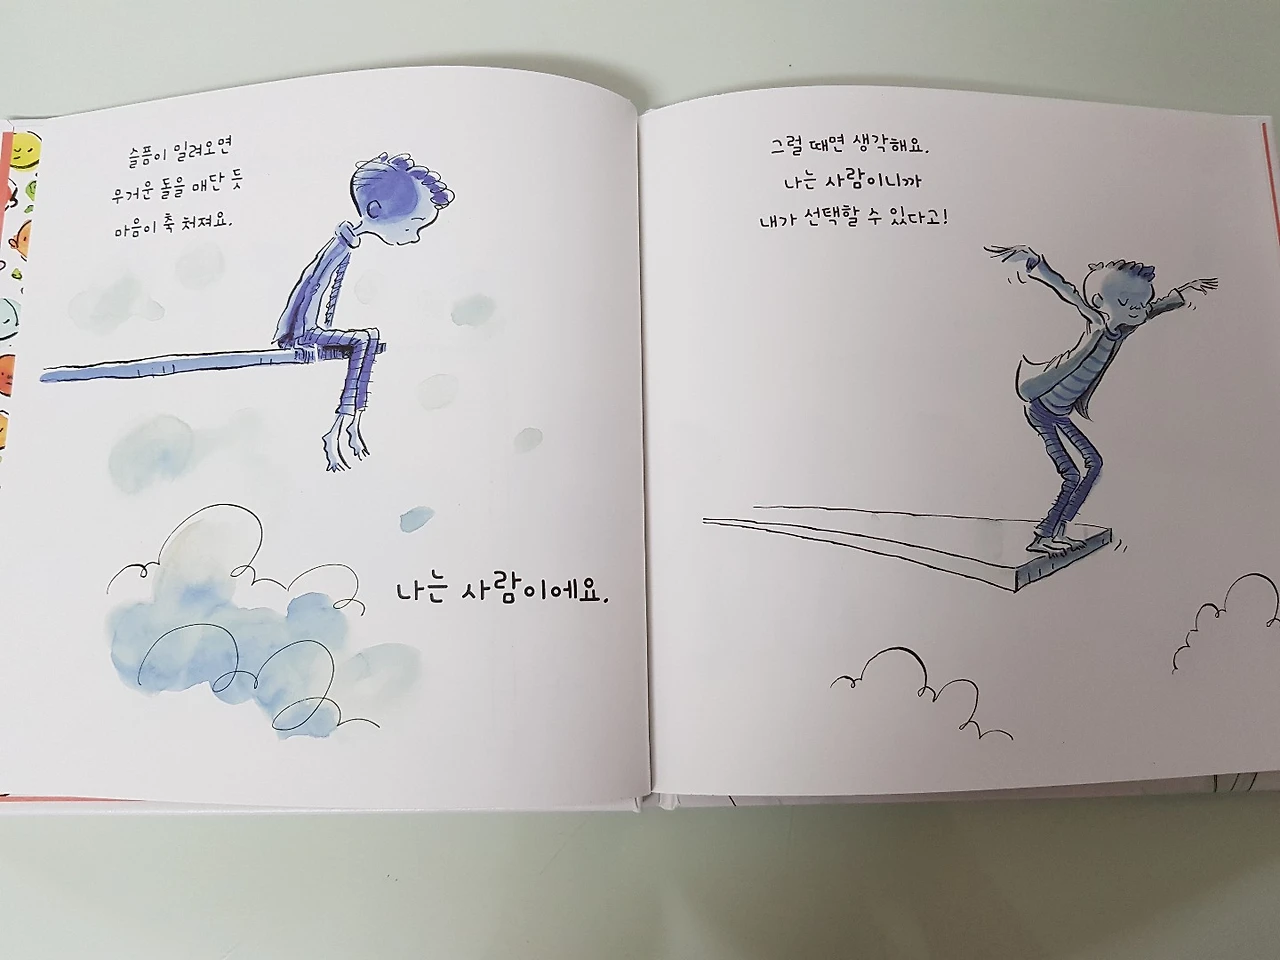 슬픔이 밀려오면
무거운 돌을 매단 듯
마음이 축 처져요.
나는 사람이에요.
그럴 때면 생각해요.
나는 사람이니까
내가 선택할 수 있다고!